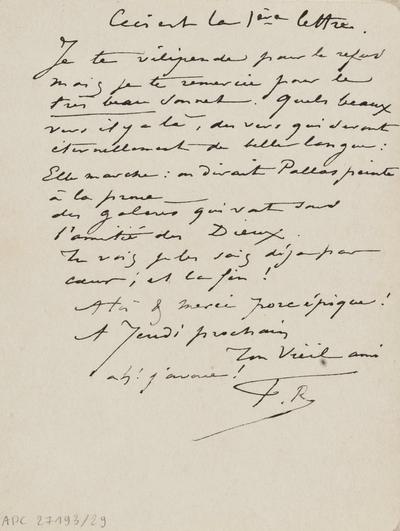 Ceci est la 1ère lettre.
Je te vilipende pour le refus
mais je te remercie pour le
très beau sonnet. Quels beaux
vers il y a là, des vers qui seront
éternellement de belle langue :
Elle marche : on dirait Pallas peinte
à la proue
des galères qui vont sous
l'amitié des Dieux.
Tu vois je les sais déjà par
cœur ; et la fin !
A toi & merci porc épique !
A Jeudi prochain
Ton Vieil ami
ah ! j'avoue !
F. R.
APC 27193/29